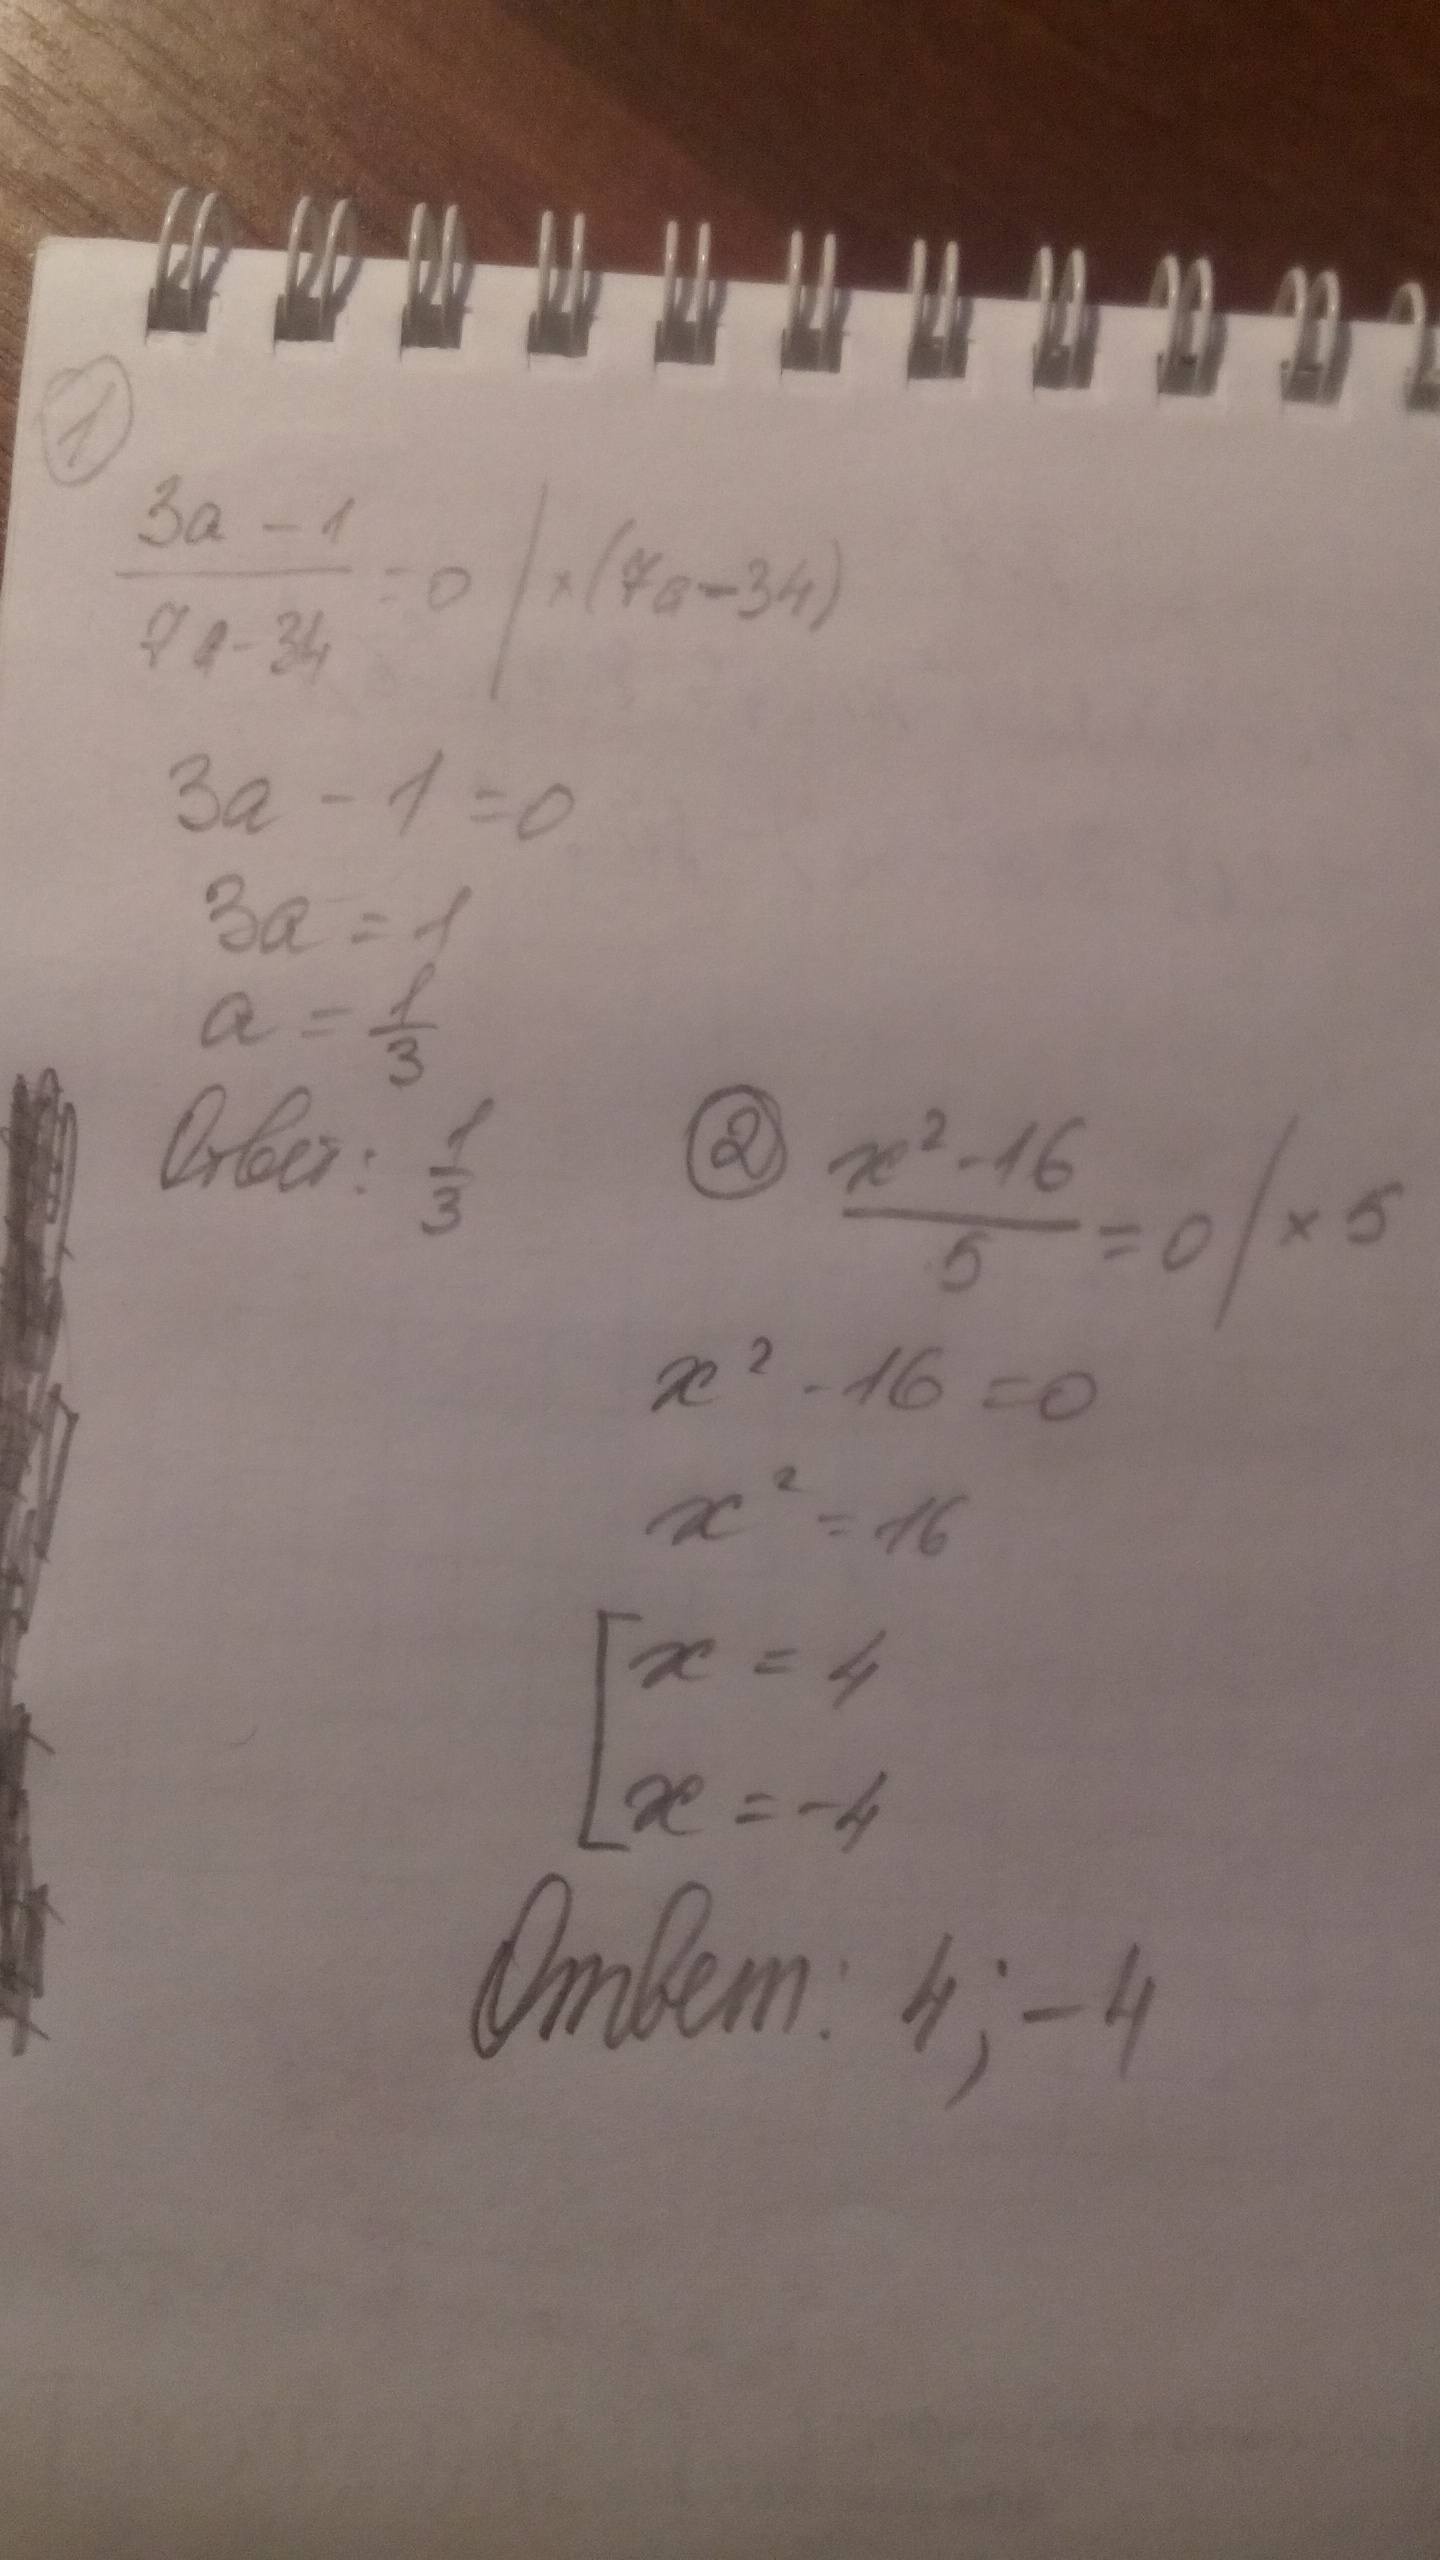 1
3a - 1
7a - 34
= 0 | × (7a - 34)
3a - 1 = 0
3a = 1
a = 1/3
Ответ: 1/3
2
x² - 16
5
= 0 | × 5
x² - 16 = 0
x² = 16
[ x = 4
x = -4
Ответ: 4; -4